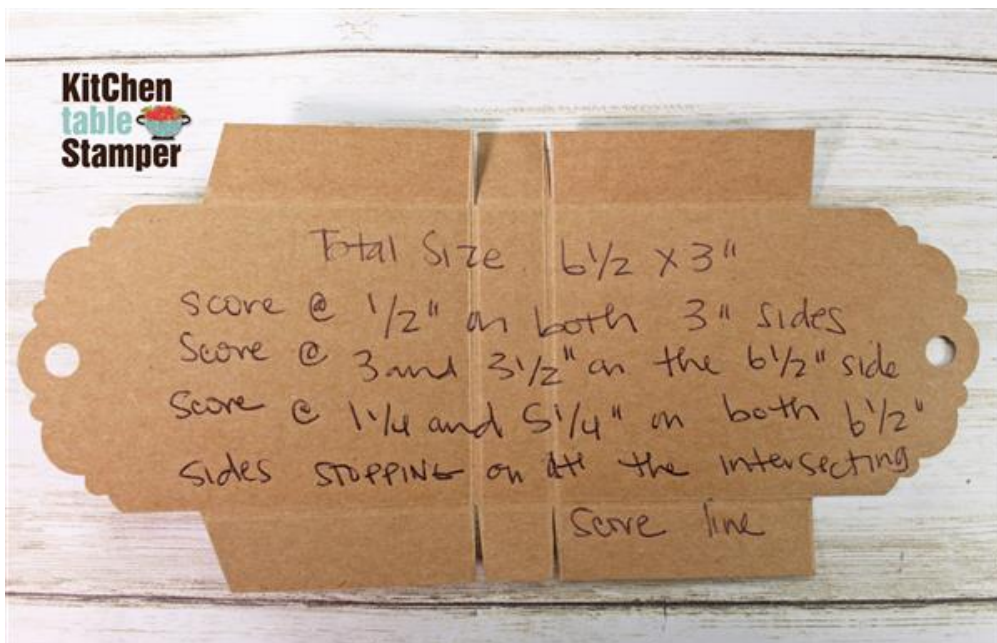 KitChen
table
Stamper
Total Size 6 1/2 x 3"
score @ 1/2" on both 3" sides
Score @ 3 and 3 1/2" on the 6 1/2" side
Score @ 1 1/4 and 5 1/4" on both 6 1/2"
sides STOPPING on the intersecting
score line